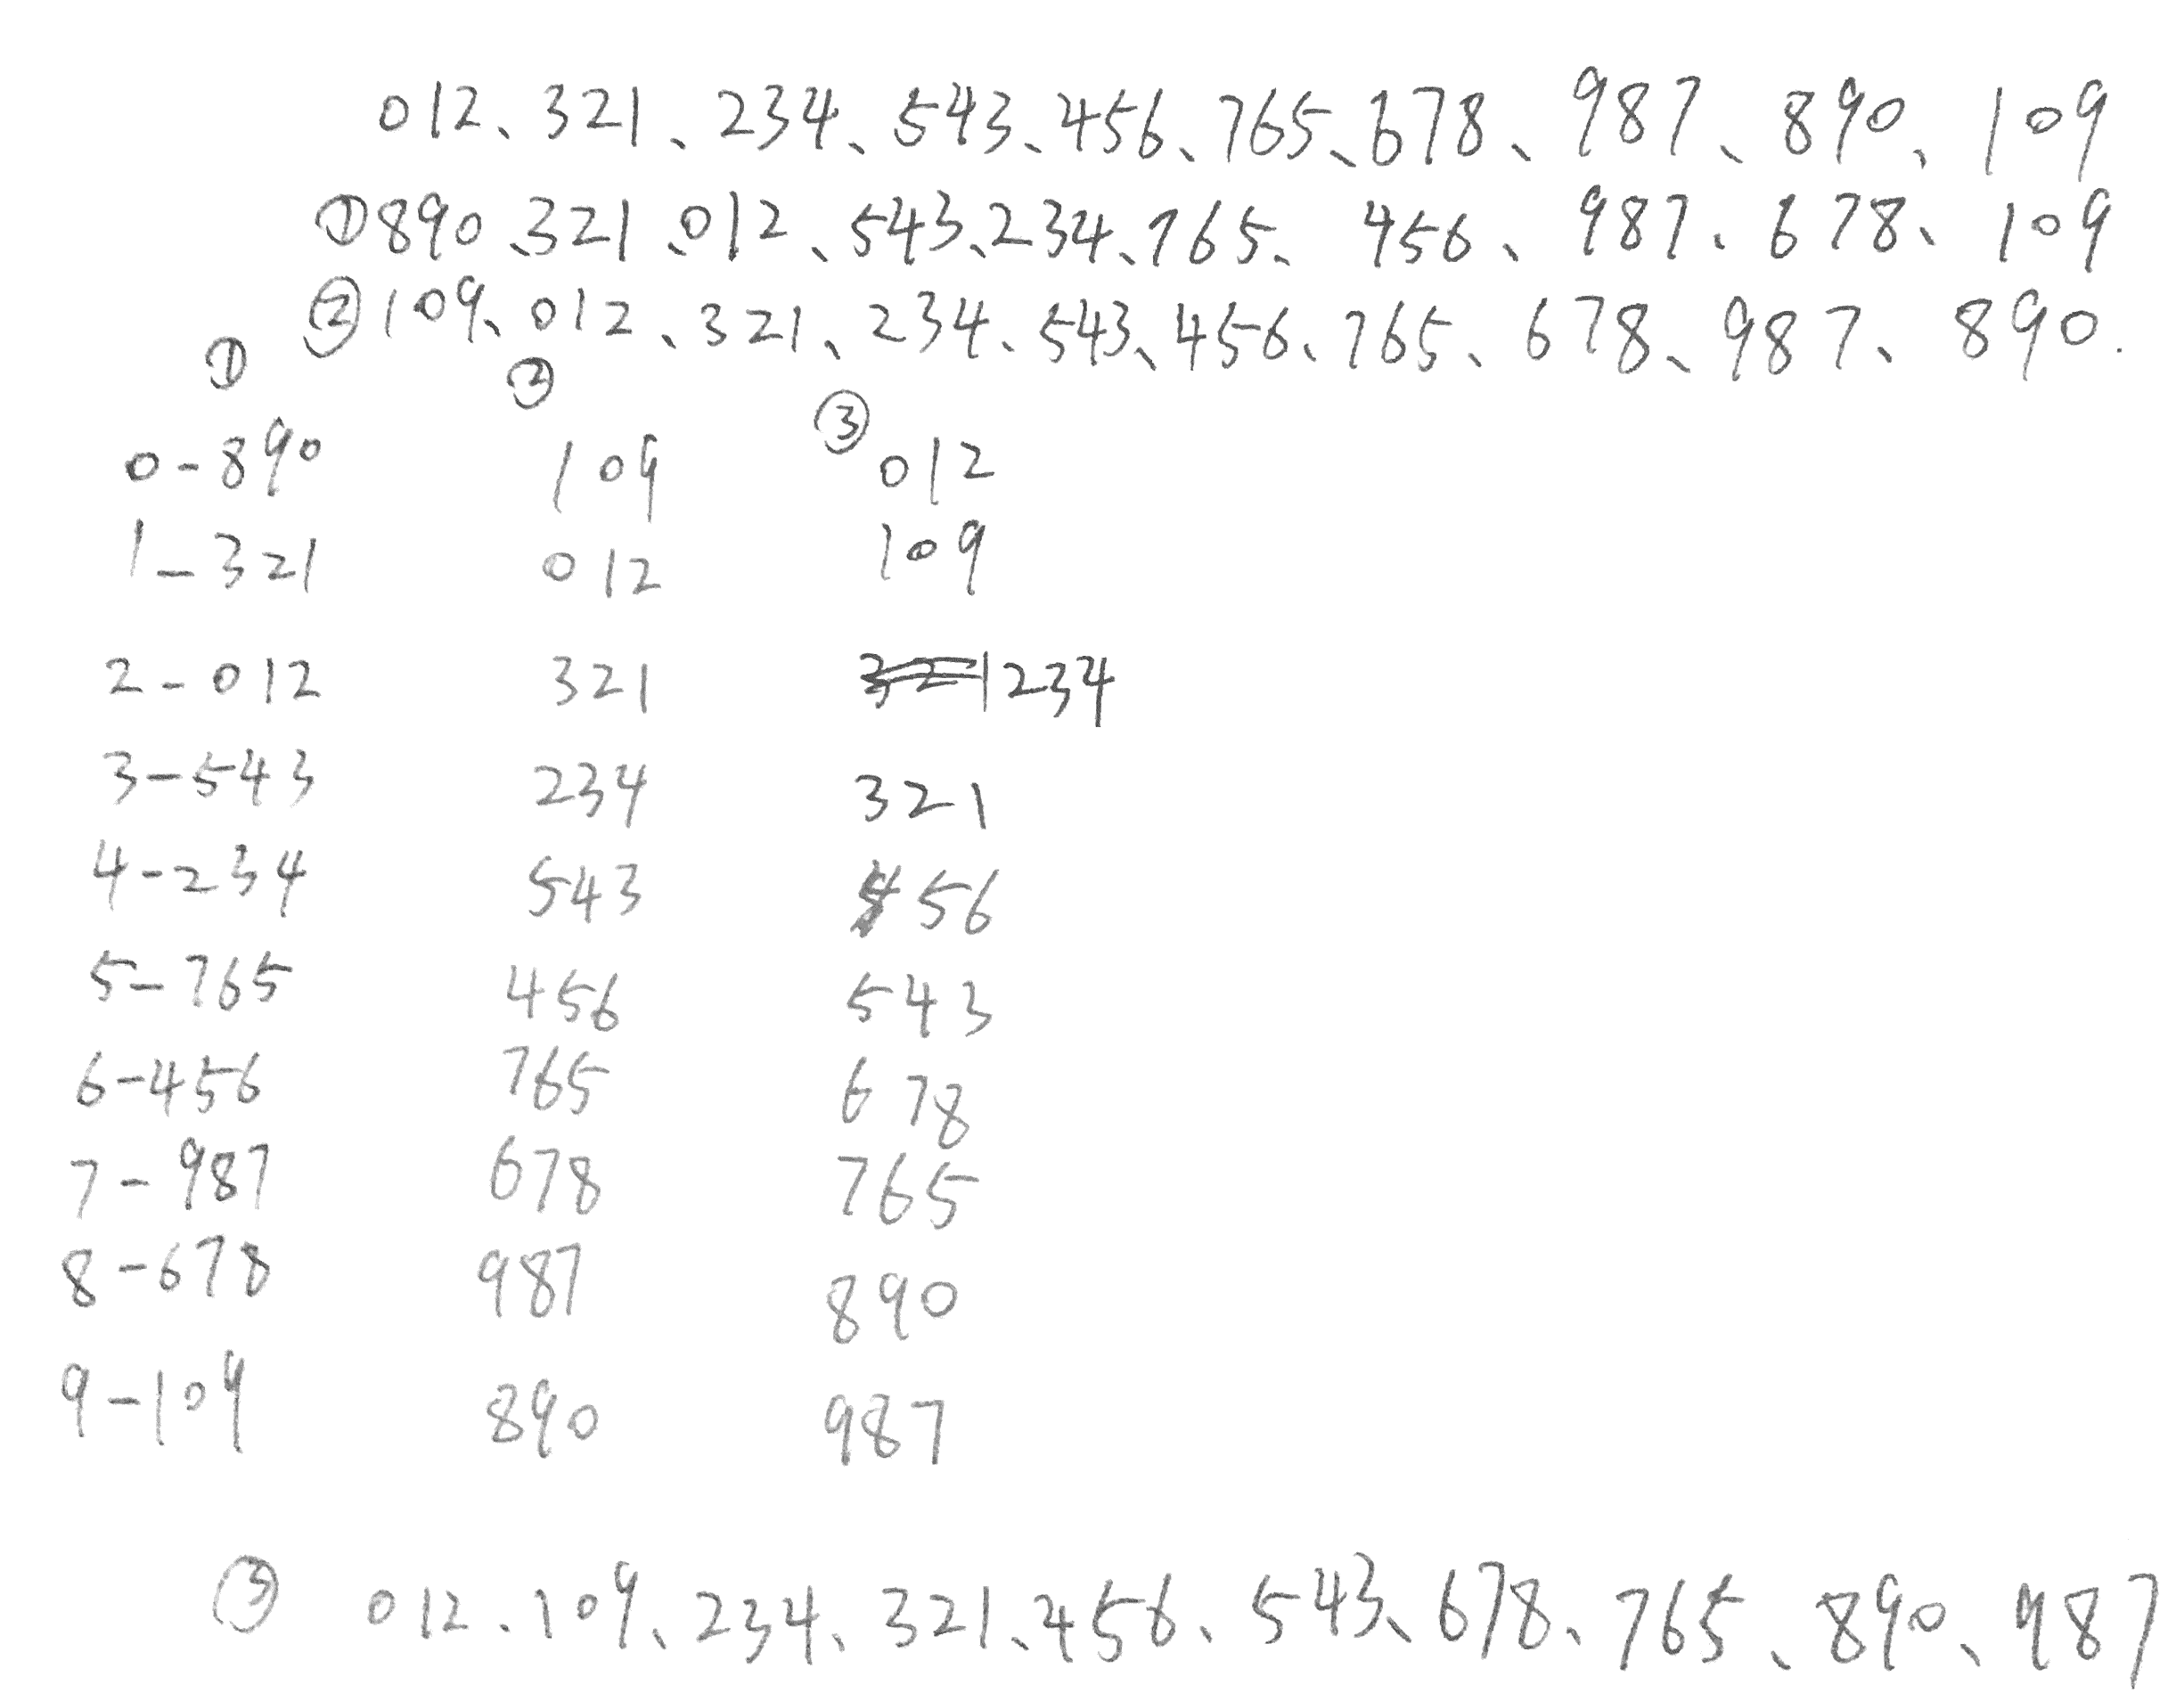 012、321、234、543、456、765、678、987、890、109
①890、321、012、543、234、765、456、987、678、109
②109、012、321、234、543、456、765、678、987、890.
① ② ③
0-890 109 012
1-321 012 109
2-012 321 321 234
3-543 234 321
4-234 543 456
5-765 456 543
6-456 765 678
7-987 678 765
8-678 987 890
9-109 890 987
③ 012、109、234、321、456、543、678、765、890、987